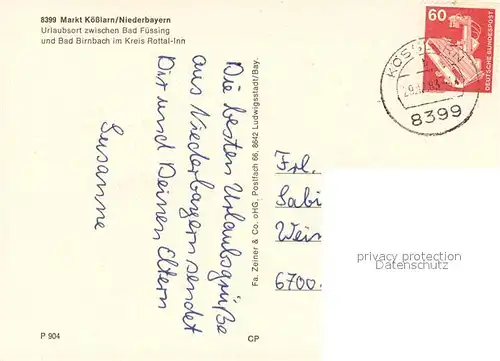 8399 Markt Kößlarn/Niederbayern
Urlaubsort zwischen Bad Füssing
und Bad Birnbach im Kreis Rottal-Inn
Die besten Urlaubsgrüße
aus Niederbayern sendet
Dir und Deinen Eltern
Susanne
Fa. Zeiner & Co. oHG, Postfach 66, 8642 Ludwigsstadt/Bay.
P 904
CP
60
DEUTSCHE BUNDESPOST
8399
Frl.
Sabi
Wein
6700
privacy protection
Datenschutz